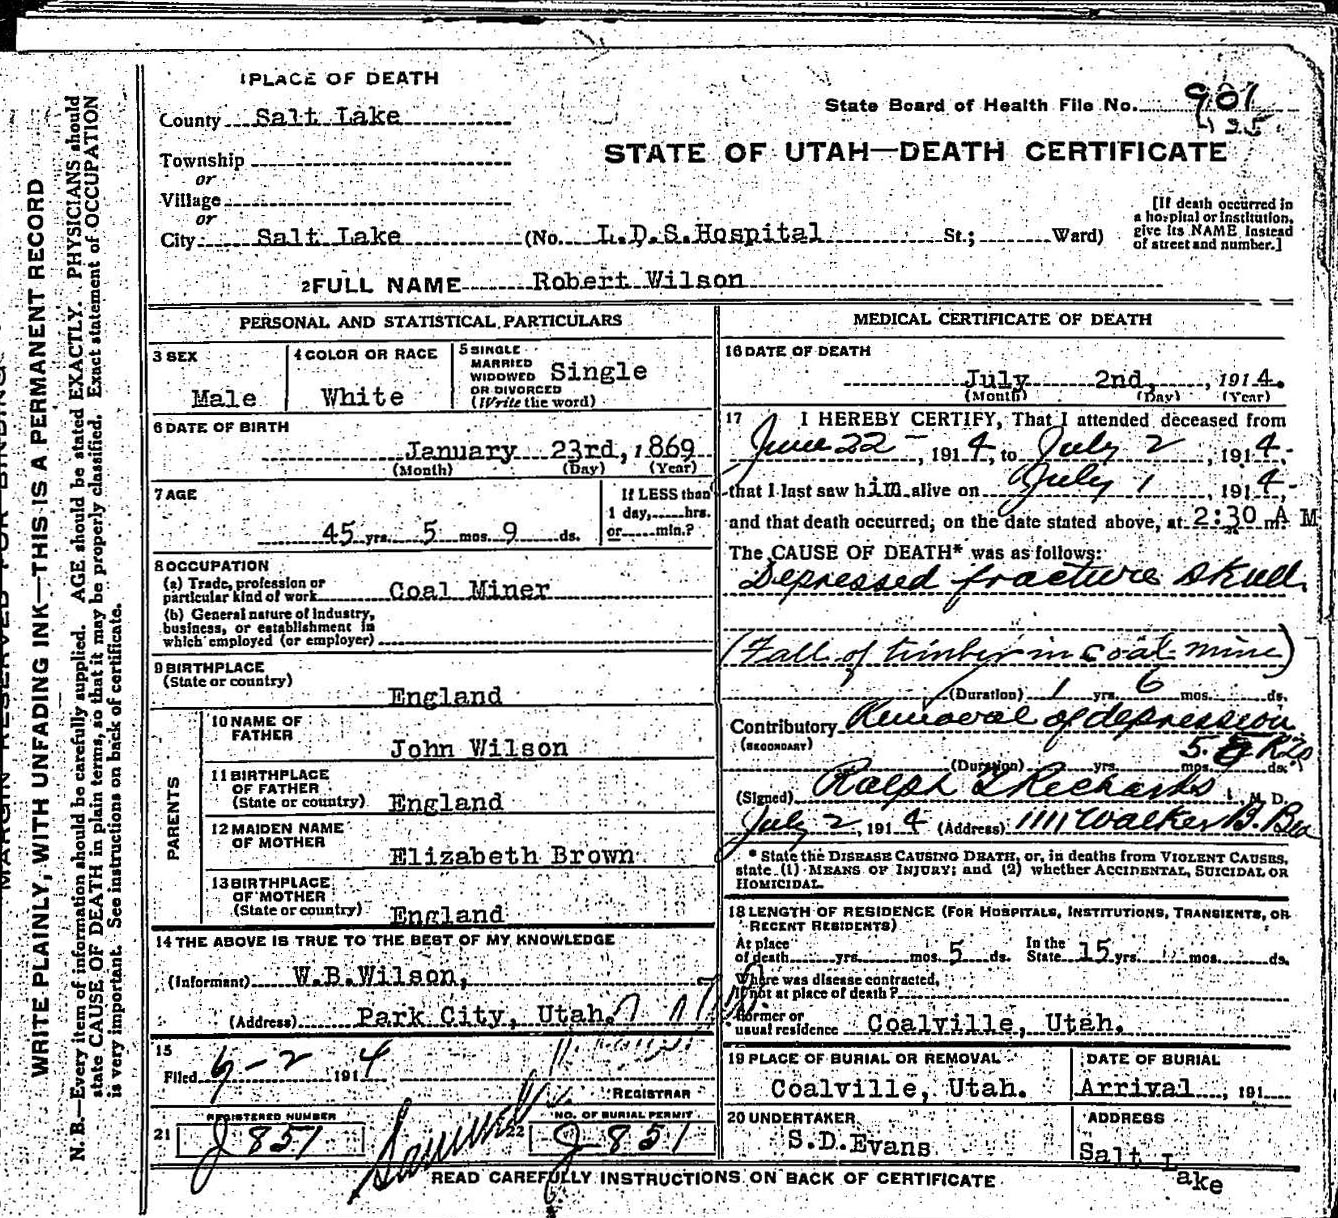 1 PLACE OF DEATH
County Salt Lake
Township
or
Village
or
City Salt Lake (No. L.D.S.Hospital St.; Ward)
State Board of Health File No. 901
425
STATE OF UTAH—DEATH CERTIFICATE
[If death occurred in
a hospital or institution,
give its NAME instead
of street and number.]
2 FULL NAME Robert Wilson
PERSONAL AND STATISTICAL PARTICULARS
3 SEX
Male
4 COLOR OR RACE
White
5 SINGLE
MARRIED
WIDOWED
OR DIVORCED
(Write the word)
Single
6 DATE OF BIRTH
January 23rd, 1869
(Month) (Day) (Year)
7 AGE
45 yrs. 5 mos. 9 ds.
If LESS than
1 day, hrs.
or min.?
8 OCCUPATION
(a) Trade, profession or
particular kind of work Coal Miner
(b) General nature of industry,
business, or establishment in
which employed (or employer)
9 BIRTHPLACE
(State or country)
England
PARENTS
10 NAME OF
FATHER
John Wilson
11 BIRTHPLACE
OF FATHER
(State or country) England
12 MAIDEN NAME
OF MOTHER
Elizabeth Brown
13 BIRTHPLACE
OF MOTHER
(State or country)
England
14 THE ABOVE IS TRUE TO THE BEST OF MY KNOWLEDGE
(Informant) W.B.Wilson,
(Address) Park City, Utah.
15
Filed 6-2 1914
REGISTRAR
REGISTERED NUMBER
21 J 851
NO. OF BURIAL PERMIT
22 J-851
MEDICAL CERTIFICATE OF DEATH
16 DATE OF DEATH
July 2nd, , 1914.
(Month) (Day) (Year)
17 I HEREBY CERTIFY, That I attended deceased from
June 22 - , 1914, to July 2 , 1914,
that I last saw him alive on July 1 , 1914,
and that death occurred, on the date stated above, at 2:30 m. A M
The CAUSE OF DEATH* was as follows:
Depressed fracture skull
(Fall of timber in coal mine)
(Duration) 1 yrs. 6 mos. ds.
Contributory Removal of depression
(SECONDARY)
(Duration) yrs. mos. ds.
(Signed) Ralph T Richards , M. D.
July 2, 1914 (Address) 1111 Walker B.
* State the DISEASE CAUSING DEATH, or, in deaths from VIOLENT CAUSES,
state (1) MEANS OF INJURY; and (2) whether ACCIDENTAL, SUICIDAL OR
HOMICIDAL.
18 LENGTH OF RESIDENCE (FOR HOSPITALS, INSTITUTIONS, TRANSIENTS, OR
RECENT RESIDENTS)
At place
of death yrs. mos. 5 ds. In the
State 15 yrs. mos. ds.
Where was disease contracted,
if not at place of death?
Former or
usual residence Coalville, Utah.
19 PLACE OF BURIAL OR REMOVAL
Coalville, Utah.
DATE OF BURIAL
Arrival , 191
20 UNDERTAKER
S.D.Evans
ADDRESS
Salt Lake
READ CAREFULLY INSTRUCTIONS ON BACK OF CERTIFICATE
MARGIN RESERVED FOR BINDING
WRITE PLAINLY, WITH UNFADING INK—THIS IS A PERMANENT RECORD
N. B.—Every item of information should be carefully supplied. AGE should be stated EXACTLY. PHYSICIANS should
state CAUSE OF DEATH in plain terms, so that it may be properly classified. Exact statement of OCCUPATION
is very important. See instructions on back of certificate.